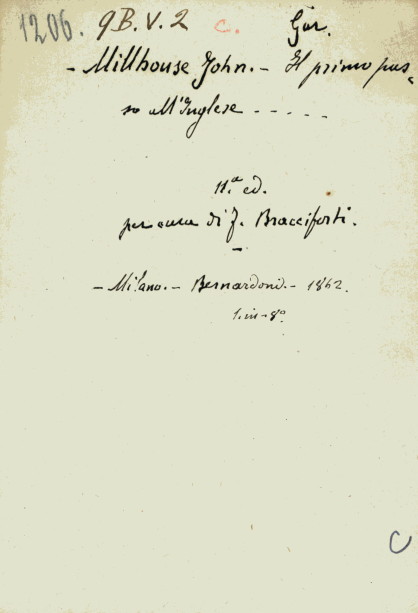 1206. 9B.V.2 c. Gar.
- Millhouse John. - Il primo pas-
so all'Inglese - - - - -
11.a ed.
per cura di F. Bracciforti.
-
- Milano. - Bernardoni. - 1862.
1. in-8°
C